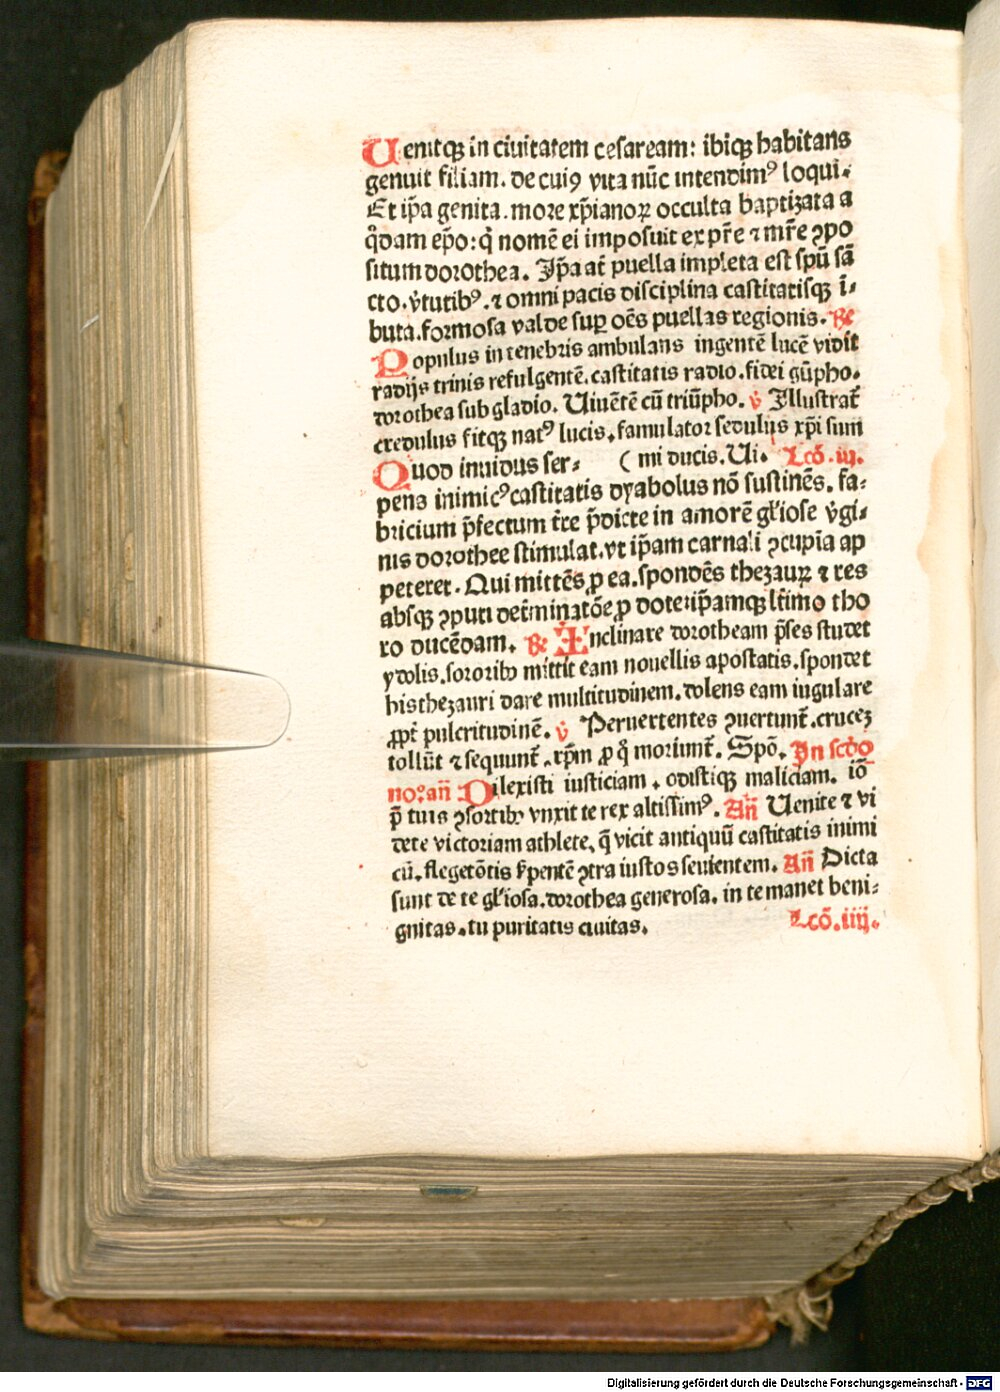 Uenitqꝫ in ciuitatem cesaream: ibiqꝫ habitans
genuit filiam. de cuiꝰ vita nūc intendimꝰ loqui.
Et ip̄a genita. more xp̄ianoꝝ occulta baptizata a
q̊dam ep̄o: q̇ nomē ei imposuit ex pr̄e ⁊ mr̄e ꝯpo
situm dorothea. Ip̄a at̄ puella impleta est spū sā
cto. v̄tutibꝰ. ⁊ omni pacis disciplina castitatisqꝫ ī⸗
buta. formosa valde suꝑ oēs puellas regionis. ℟
Populus in tenebris ambulans ingentē lucē vidit
radijs trinis refulgentē. castitatis radio. fidei gūpho.
dorothea sub gladio. Uiuētē cū triūpho. ℣ Illustrat̄
credulus fitqꝫ natꝰ lucis. famulator sedulus xp̄i sum
Quod inuidus ser⸗ ( mi ducis. Ui. Lcō. iij.
pens inimicꝰ castitatis dyabolus nō sustinēs. fa⸗
bricium p̄fectum tr̄e p̄dicte in amorē gl̄iose v̄gi⸗
nis dorothee stimulat. vt ip̄am carnali ꝯcupīa ap
peteret. Qui mittēs ꝓ ea. spondēs thezauꝝ ⁊ res
absqꝫ ꝯputi det̄minatōe ꝓ dote: ip̄amqꝫ l̄timo tho
ro ducēdam. ℟ Inclinare dorotheam p̄ses studet
ydolis. sororibꝫ mittit eam nouellis apostatis. spondet
his thezauri dare multitudinem. dolens eam iugulare
ꝓpt̄ pulcritudinē. ℣ Peruertentes ꝯuertunt̄. crucez
tollūt ⁊ sequunt̄. xp̄m ꝓ q̊ moriunt̄. Spō. In scd̄o
no: an̄ Dilexisti iusticiam. odistiqꝫ maliciam. iō
p̄ tuis ꝯsortibꝫ vnxit te rex altissimꝰ. An̄ Uenite ⁊ vi
dete victoriam athlete, q̄ vicit antiquū castitatis inimi
cū. flegetōtis s̄pentē ꝯtra iustos seuientem. An̄ Dicta
sunt de te gl̄iosa. dorothea generosa. in te manet beni⸗
gnitas. tu puritatis ciuitas. Lcō. iiij.
Digitalisierung gefördert durch die Deutsche Forschungsgemeinschaft - DFG